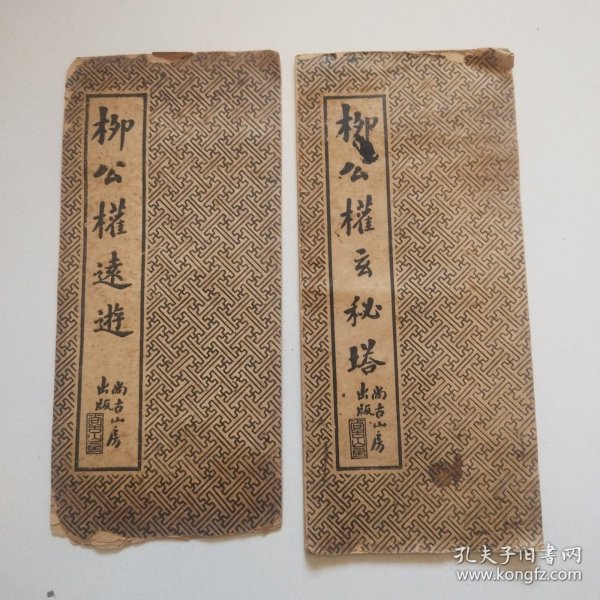 柳公權遠遊
尚古山房
出版
柳公權玄秘塔
尚古山房
出版
孔夫子旧书网
www.kongfz.com